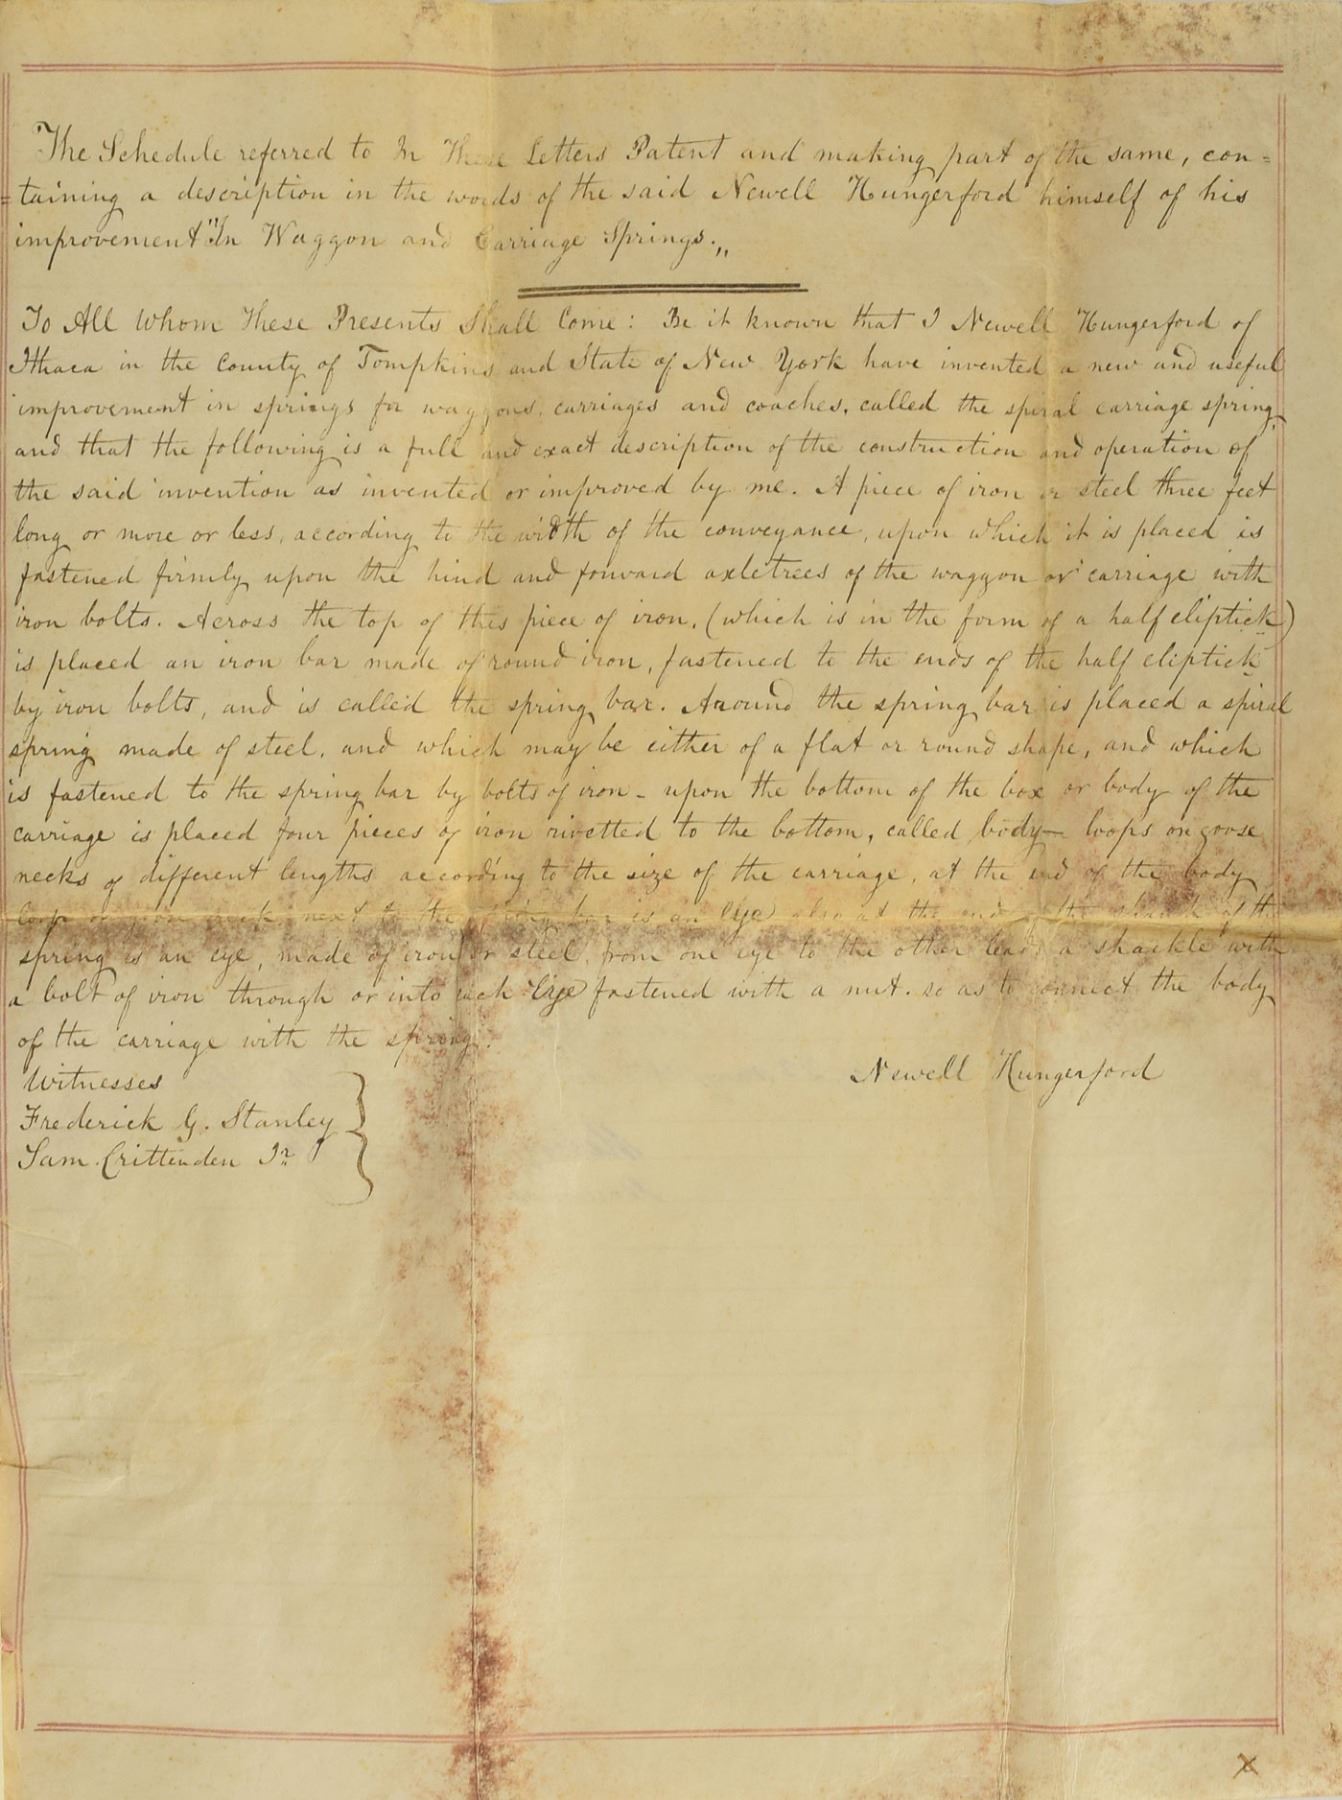 The Schedule referred to In These Letters Patent and making part of the same, con=
=taining a description in the words of the said Newell Hungerford himself of his
improvement "In Waggon and Carriage Springs."
To All Whom These Presents Shall Come: Be it known that I Newell Hungerford of
Ithaca in the county of Tompkins and State of New York have invented a new and useful
improvement in springs for waggons, carriages and coaches, called the spiral carriage spring,
and that the following is a full and exact description of the construction and operation of
the said invention as invented or improved by me. A piece of iron or steel three feet
long or more or less, according to the width of the conveyance, upon which it is placed is
fastened firmly upon the hind and forward axletrees of the waggon or carriage with
iron bolts. Across the top of this piece of iron, (which is in the form of a half eliptick)
is placed an iron bar made of round iron, fastened to the ends of the half eliptick
by iron bolts, and is called the spring bar. Around the spring bar is placed a spiral
spring made of steel, and which may be either of a flat or round shape, and which
is fastened to the spring bar by bolts of iron - upon the bottom of the box or body of the
carriage is placed four pieces of iron rivetted to the bottom, called body- loops or goose
necks of different lengths according to the size of the carriage, at the end of the body
loop or goose neck next to the spring bar is an Eye also at the end of the shank of th
spring is an eye, made of iron or steel, from one eye to the other leads a shackle with
a bolt of iron through or into each Eye fastened with a nut. so as to connect the body
of the carriage with the spring.
Newell Hungerford
Witnesses
Frederick G. Stanley
Sam. Crittenden Jr
x